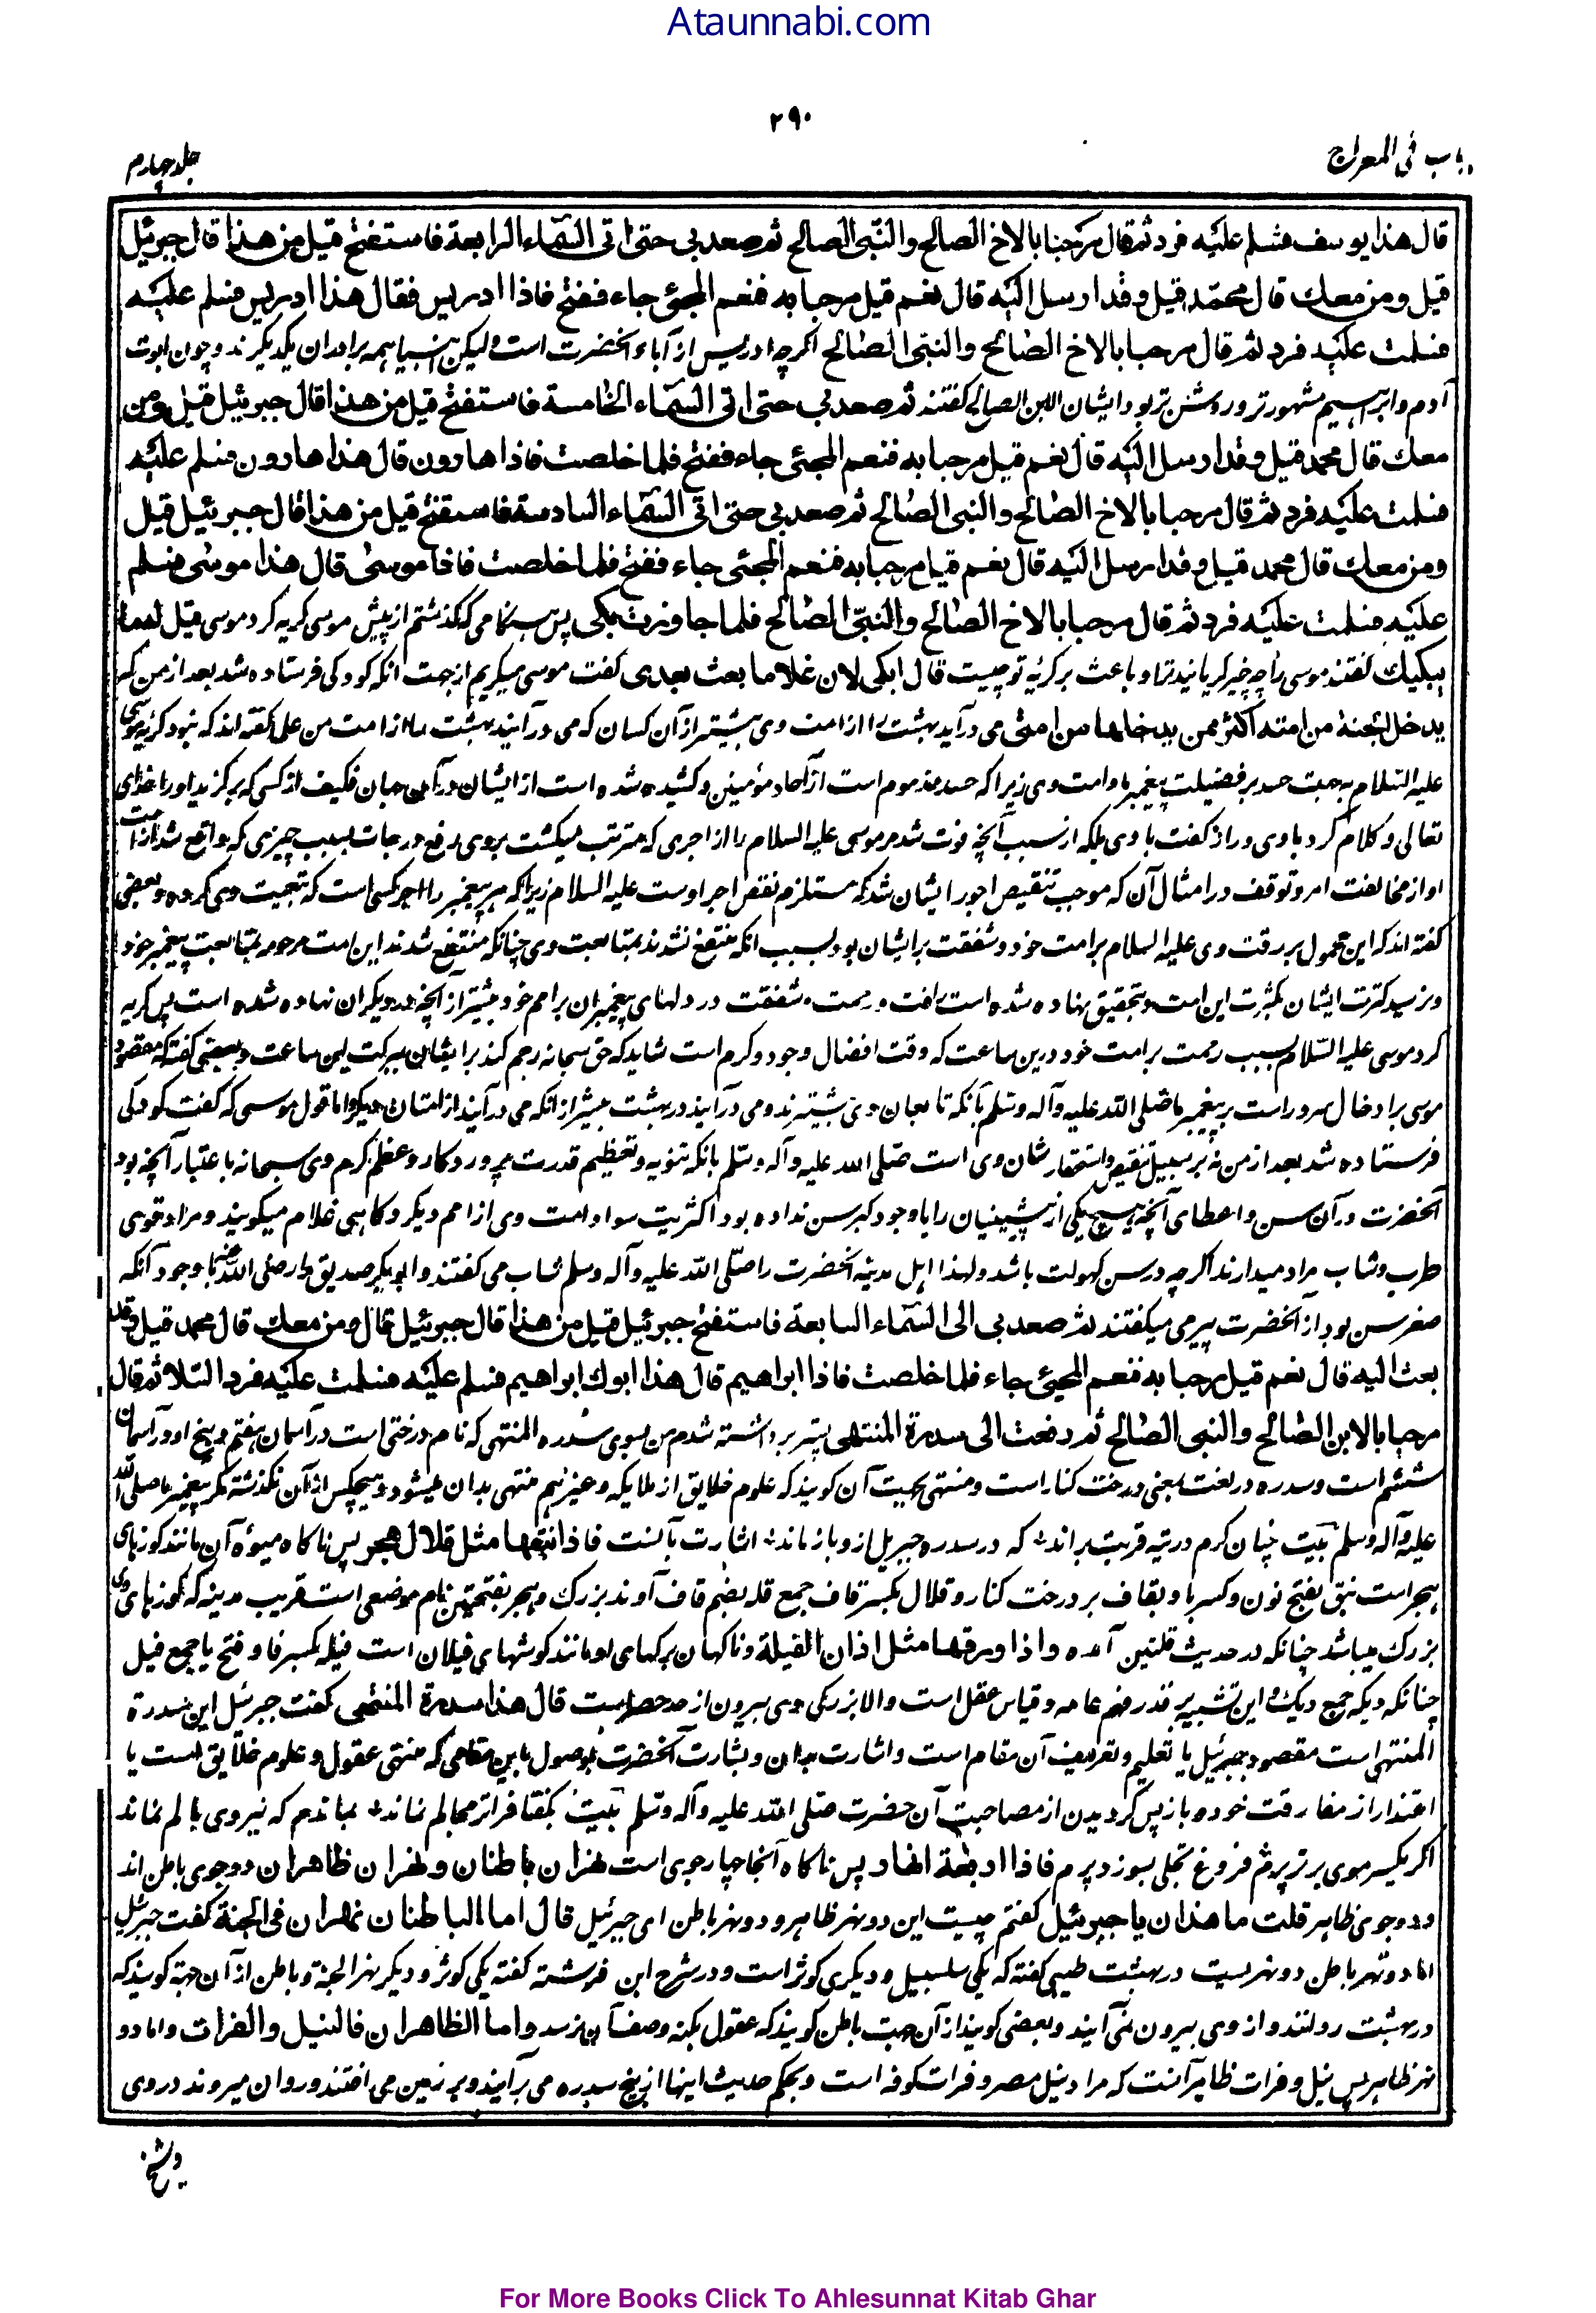 Ataunnabi.com
۲۹۰
باب فی المعراج
جلد چہارم
قال هذا یوسف فسلم علیه فرد ثم قال مرحبا بالاخ الصالح والنبی الصالح ثم صعد بی حتی اتی السماء الرابعة فاستفتح قیل من هذا قال جبرئیل
قیل و من معك قال محمد قیل و قد ارسل الیه قال نعم قیل مرحبا به فنعم المجئ جاء ففتح فاذا ادریس فقال هذا ادریس فسلم علیه
فسلمت علیه فرد ثم قال مرحبا بالاخ الصالح والنبی الصالح اگرچه ادریس از آباء آنحضرت است ولیکن انبیا همه برادران یکدیگرند و چون ابوت
آدم و ابراهیم مشهورتر و روشن تر بود ایشان الابن الصالح گفتند ثم صعد بی حتی اتی السماء الخامسة فاستفتح قیل من هذا قال جبرئیل قیل ومن
معك قال محمد قیل و قد ارسل الیه قال نعم قیل مرحبا به فنعم المجئ جاء ففتح فلما خلصت فاذا هارون قال هذا هارون فسلم علیه
فسلمت علیه فرد ثم قال مرحبا بالاخ الصالح والنبی الصالح ثم صعد بی حتی اتی السماء السادسة فاستفتح قیل من هذا قال جبرئیل قیل
ومن معك قال محمد قیل و قد ارسل الیه قال نعم قیل مرحبا به فنعم المجئ جاء ففتح فلما خلصت فاذا موسی قال هذا موسی فسلم
علیه فسلمت علیه فرد ثم قال مرحبا بالاخ الصالح والنبی الصالح فلما جاوزت بکی پس هنگامی که گذشتم از پیش موسی گریه کرد موسی قیل له ما
یبکیك گفتند موسی را چه چیز گریانید ترا و باعث بر گریهٔ تو چیست قال ابکی لان غلاما بعث بعدی گفت موسی میگریم از جهت آنکه کودکی فرستاده شد بعد از من که
یدخل الجنة من امته اکثر ممن یدخلها من امتی می درآید بهشت را از امت وی بیشتر از آن کسان که می درآیند بهشت را از امت من علما گفته اند که نبود گریه موسی
علیه السلام به جهت حسد بر فضیلت پیغمبر ما و امت وی زیرا که حسد مذموم است از آحاد مؤمنین و کشیده شده است از ایشان در آن جهان فکیف از کسی که برگزید او را خدای
تعالی و کلام کرد با وی و راز گفت با وی بلکه از سبب آنچه فوت شد مر موسی علیه السلام را از اجری که مترتب میگشت بروی رفع درجات بسبب چیزی که واقع شد از امت
او از مخالفت امر و توقف در امتثال آن که موجب تنقیص اجور ایشان شد که مستلزم نقص اجر اوست علیه السلام زیرا که هر پیغمبر را اجر کسی است که تبعیت وی کرده و بعضی
گفته اند که این محمول بر رقت وی علیه السلام بر امت خود و شفقت بر ایشان بود بسبب آنکه منتفع نشدند بمتابعت وی چنانکه منتفع شدند این امت مرحومه بمتابعت پیغمبر خود
و نرسید کثرت ایشان بکثرت این امت و بتحقیق نهاده شده است رافت و رحمت و شفقت در دلهای پیغمبران بر امم خود بیشتر از آنچه در دیگران نهاده شده است پس گریه
کرد موسی علیه السلام بسبب رحمت بر امت خود درین ساعت که وقت افضال وجود و کرم است شاید که حق سبحانه رحم کند بر ایشان ببرکت این ساعت و بعضی گفته که مقصود
موسی برا دخال سرور است بر پیغمبر ما صلی الله علیه وآله وسلم بآنکه تابعان وی بیشترند و می درآیند در بهشت بیشتر از آنکه می درآیند از امتان دیگر و اما قول موسی که گفت کودکی
فرستاده شد بعد از من نه بر سبیل تنقیص و استحقار شان وی است صلی الله علیه وآله وسلم بلکه تنویه و تعظیم قدرت پروردگار و عظم کرم وی سبحانه باعتبار آنچه بود
آنحضرت در آن سن و اعطای آنچه هیچ یکی از پیشینیان را با وجود کبر سن نداده بود اکثریت سواد امت وی از امم دیگر و گاهی غلام میگویند و مراد قوی
طرب و شاب مراد میدارند اگرچه در سن کهولت باشد ولهذا اهل مدینه آنحضرت را صلی الله علیه وآله وسلم شاب می گفتند و ابوبکر صدیق را رضی الله عنه با وجود آنکه
صغر سن بود از آنحضرت پیر می میگفتند ثم صعد بی الی السماء السابعة فاستفتح جبرئیل قیل من هذا قال جبرئیل قال ومن معك قال محمد قیل وقد
بعث الیه قال نعم قیل مرحبا به فنعم المجئ جاء فلما خلصت فاذا ابراهیم قال هذا ابوك ابراهیم فسلم علیه فسلمت علیه فرد السلام ثم قال
مرحبا بالابن الصالح والنبی الصالح ثم رفعت الی سدرة المنتهی پستر برداشته شدم من بسوی سدره المنتهی که نام درختی است در آسمان هفتم و بیخ او در آسمان
ششم است و سدره در لغت بمعنی درخت کنار است و منتهی بجهت آن گویند که علوم خلایق از ملایکه و غیرهم منتهی بدان میشود و هیچکس از آن نگذشته مگر پیغمبر ما صلی الله
علیه وآله وسلم بیت چنان گرم در تیه قربت براند؛ که در سدره جبریل ازو باز ماند؛ اشارت بآنست فاذا نبقها مثل قلال هجر پس ناگاه میوهٔ آن مانند کوزهای
هجر است نبق بفتح نون و کسر با و بقاف بر درخت کنار و قلال بکسر قاف جمع قله بضم قاف آوند بزرگ و هجر بفتحتین نام موضعی است قریب مدینه که کوزهای وی
بزرگ میباشد چنانکه در حدیث قلتین آمده واذا ورقها مثل اذان الفیلة و ناگهان برگهای او مانند گوشهای فیلان است فیله بکسر فا و فتح یا جمع فیل
چنانکه دیکه جمع دیک و این تشبیه بر قدر فهم عامه و قیاس عقل است والا بزرگی وی بیرون از حد حصر است قال هذا سدرة المنتهی گفت جبرئیل این سدرة
المنتهی است مقصود جبرئیل یا تعلیم و تعریف آن مقام است و اشارت بدان و بشارت آنحضرت بوصول باین مقامی که منتهی عقول و علوم خلایق است یا
اعتذار از مفارقت خود و باز پس گردیدن از مصاحبت آن حضرت صلی الله علیه وآله وسلم بیت بگفتا فراتر مجالم نماند؛ بماندم که نیروی بالم نماند
اگر یکسر موی برتر پرم فروغ تجلی بسوزد پرم فاذا اربعة انهار پس ناگاه آنجا چهار جوی است نهران باطنان و نهران ظاهران دو جوی باطن اند
ودو جوی ظاهر قلت ما هذان یا جبرئیل گفتم چیست این دو نهر ظاهر و دو نهر باطن ای جبرئیل قال اما الباطنان نهران فی الجنة گفت جبرئیل
اما دو نهر باطن دو نهریست در بهشت طیبی گفته که یکی سلسبیل و دیگری کوثر است و در شرح ابن فرشته گفته یکی کوثر و دیگر نهر الجنة و باطن از آن جهة گویند که
در بهشت روانند و از وی بیرون نمی آیند و بعضی گویند از آن جهت باطن گویند که عقول بکنه وصف آن نرسد واما الظاهران فالنیل والفرات واما دو
نهر ظاهر پس نیل و فرات ظاهر آنست که مراد نیل مصر و فرات کوفه است و بحکم حدیث اینها از بیخ سدره می برآیند و بر زمین می افتند و روان میروند در وی
For More Books Click To Ahlesunnat Kitab Ghar